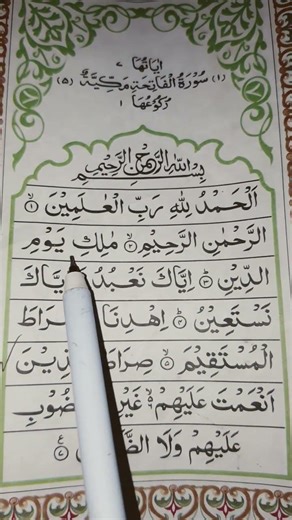 اٰیَاتُهَا ٧
(١) سُوْرَةُ الْفَاتِحَةِ مَکِّیَّةٌ (۵)
رُکُوْعُهَا ١
بِسْمِ اللّٰهِ الرَّحْمٰنِ الرَّحِیْمِ
اَلْحَمْدُ لِلّٰهِ رَبِّ الْعٰلَمِیْنَ ۙ﴿١﴾
الرَّحْمٰنِ الرَّحِیْمِ ۙ﴿٢﴾ مٰلِكِ یَوْمِ
الدِّیْنِ ﴿٣﴾ اِیَّاكَ نَعْبُدُ یَّاكَ
نَسْتَعِیْنُ ﴿۴﴾ اِهْدِنَا رَاطَ
الْمُسْتَقِیْمَ ۙ﴿۵﴾ صِرَا ذِیْنَ
اَنْعَمْتَ عَلَیْهِمْ ۙ۬ غَیْرِ ضُوْبِ
عَلَیْهِمْ وَلَا الضَّ ﴿٧﴾